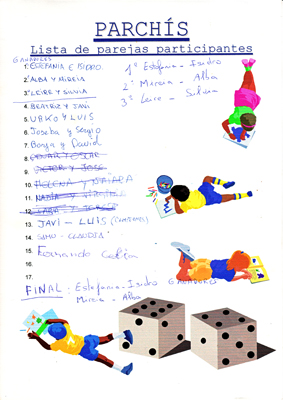 PARCHÍS
Lista de parejas participantes
GANADORES
1. ESTEFANIA E ISIDRO.
2. ALBA Y MIREIA
3. LEIRE Y SILVIA
4. BEATRIZ Y JAVI
5. URKO Y LUIS
6. Joseba y Sergio
7. Borja y David
8.
9. VICTOR Y JOSE
10. HELENA Y NAIARA
11. NADIA Y
12.
13. JAVI - LUIS
14. - CLAUDIA
15. Fernando
16.
17.
FINAL: Estefania - Isidro GANADORES
Mireia - Alba
1º Estefania - Isidro
2º Mireia - Alba
3º Leire - Silvia